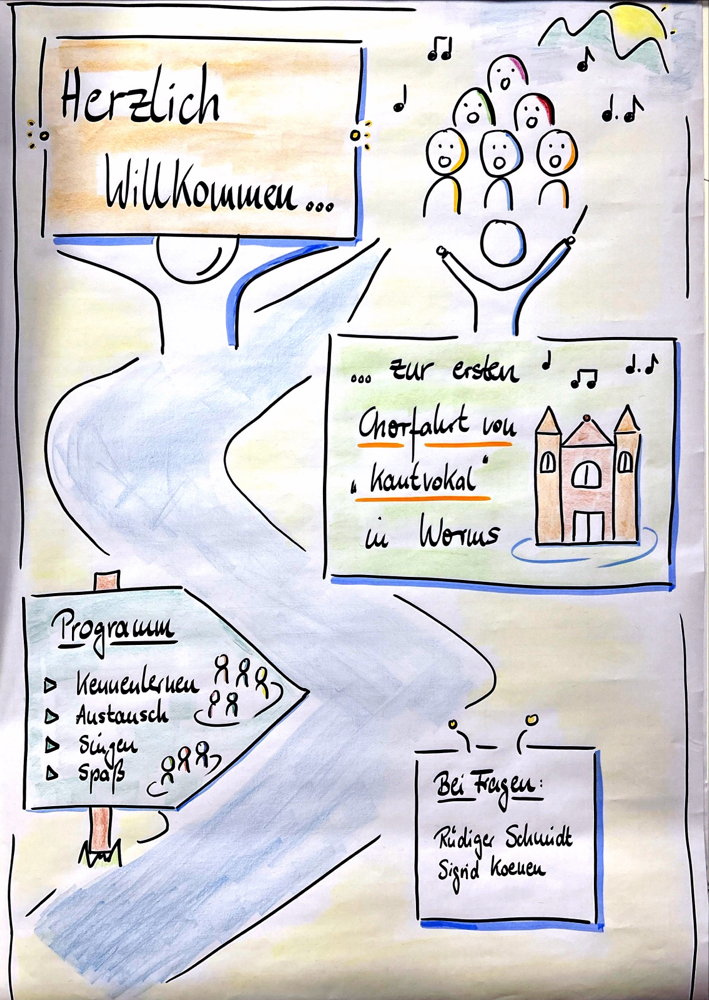 Herzlich
Willkommen...
... zur ersten
Chorfahrt von
„Kautvokal“
in Worms
Programm
Kennenlernen
Austausch
Singen
Spaß
Bei Fragen:
Rüdiger Schmidt
Sigrid Koenen